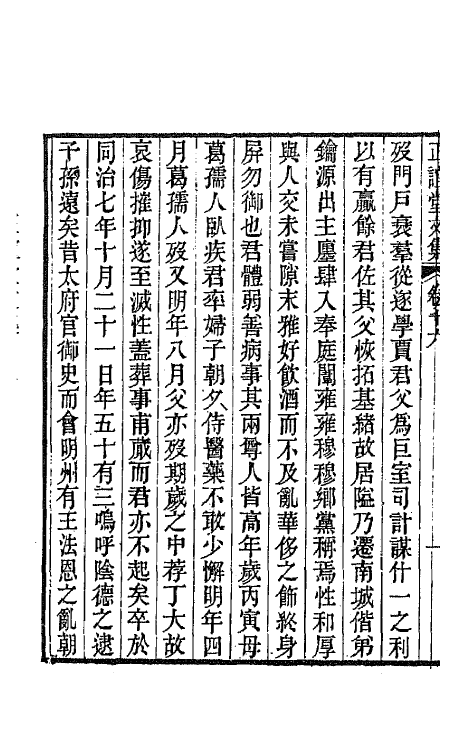 正誼堂文集 卷十六 一
歿門戶衰羣從遂學賈君父爲巨室司計謀什一之利
以有贏餘君佐其父恢拓基緒故居隘乃遷南城偕弟
鑰源出主廛肆入奉庭闈雍雍穆穆鄉黨稱焉性和厚
與人交未嘗隙末雅好飲酒而不及亂華侈之飾終身
屏勿御也君體弱善病事其兩尊人皆高年歲丙寅母
葛孺人臥疾君率婦子朝夕侍醫藥不敢少懈明年四
月葛孺人歿又明年八月父亦歿期歲之中荐丁大故
哀傷摧抑遂至滅性蓋葬事甫蕆而君亦不起矣卒於
同治七年十月二十一日年五十有三嗚呼陰德之逮
子孫遠矣昔太府官御史而會明州有王法恩之亂朝